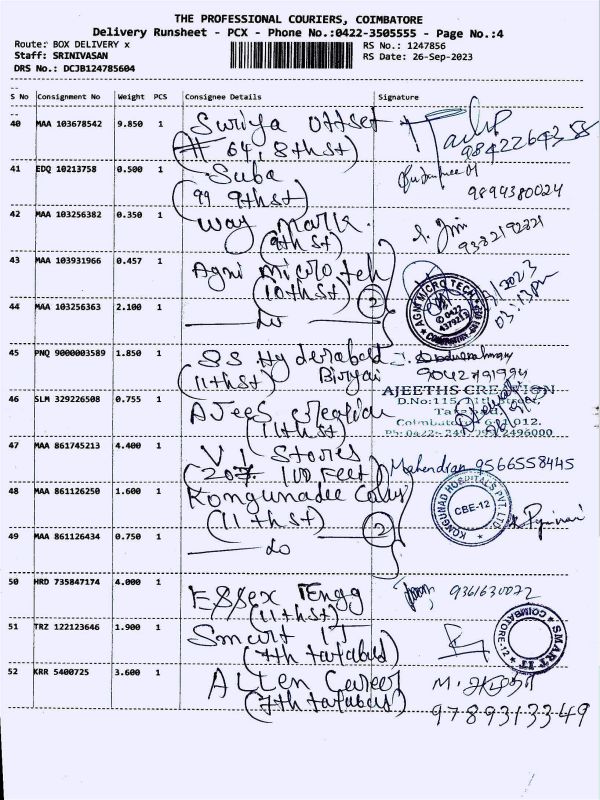 THE PROFESSIONAL COURIERS, COIMBATORE
Delivery Runsheet - PCX - Phone No.:0422-3505555 - Page No.:4
Route: BOX DELIVERY x RS No.: 1247856
Staff: SRINIVASAN RS Date: 26-Sep-2023
DRS No.: DCJB124785604
S No Consignment No Weight PCS Consignee Details Signature
40 MAA 103678542 9.850 1 Suriya offset
(# 64, 8th st) 98422643
41 EDQ 10213758 0.500 1 Suba
(99 9th st) 9894380024
42 MAA 103256382 0.350 1 Way Mark.
(9th st) 9382192221
43 MAA 103931966 0.457 1 Agni micro teh
(10th st) 2 /2023
03:13pm
AGNI MICRO TECH
0422
4379213
44 MAA 103256363 2.100 1 do
45 PNQ 9000003589 1.850 1 SS Hyderabad
(11th st) Biryai 9042791994
46 SLM 329226508 0.755 1 AJees creation
(11th st)
AJEETHS CREATION
D.No:115, 11th Street,
47 MAA 861745213 4.400 1 V J Stores
(207. 100 Feet) Mahendran 9566558445
48 MAA 861126250 1.600 1 Kongunadee
(11th st) 2
KONGUNAD HOSPITALS PVT. LTD
CBE-12
49 MAA 861126434 0.750 1 do
50 HRD 735847174 4.000 1 Essex Engg
(11th st) 9361630072
51 TRZ 122123646 1.900 1 Smart IT
(7th tatabad)
SMART IT
COIMBATORE-12
52 KRR 5400725 3.600 1 Allen Career
(7th tatabad) 9789313349